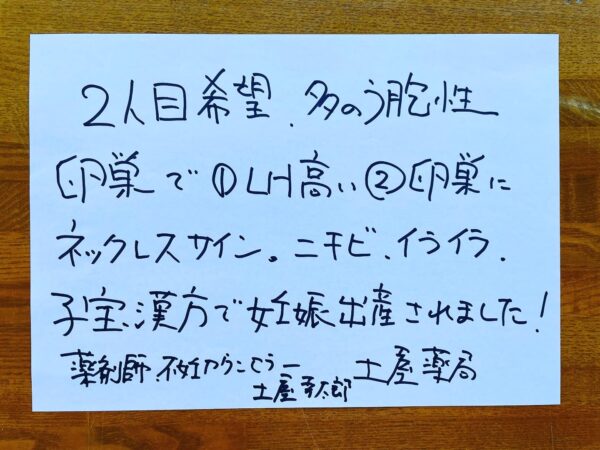 2人目希望、多のう胞性
卵巣で①LH高い②卵巣に
ネックレスサイン。ニキビ、イライラ、
子宝漢方で妊娠出産されました!
薬剤師、不妊カウンセラー 土屋薬局
土屋幸太郎